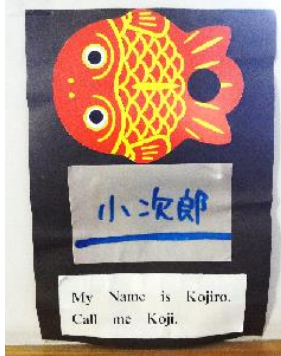 小次郎
My Name is Kojiro.
Call me Koji.